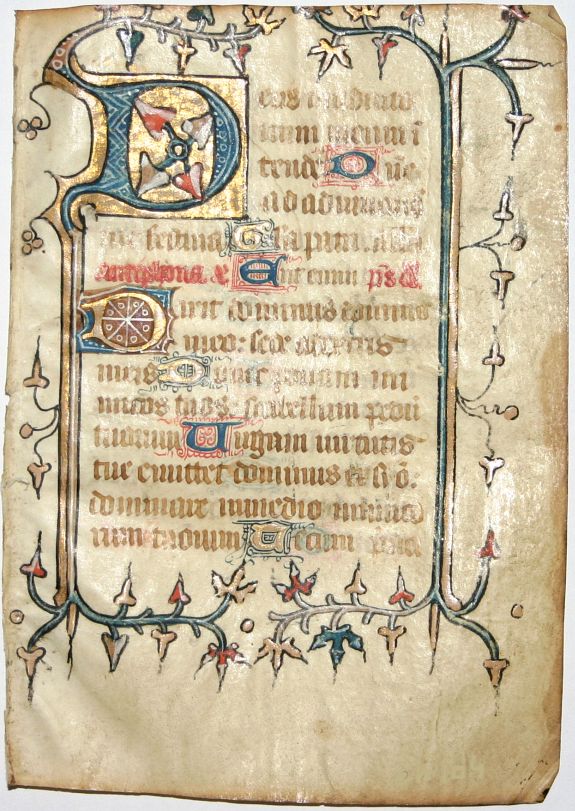 Deus in adiuto
rium meum ī
tende Dñe
ad adiuuand
me festina Gl̄a patri.
antiphona
Dixit dominus domino
meo: sede a dextris
meis Donec ponam ini
micos tuos: scabellum pedū
tuorum Uirgam uirtutis
tue emittet dominus ex
dominare in medio inimico
rum tuorum Tecum prin